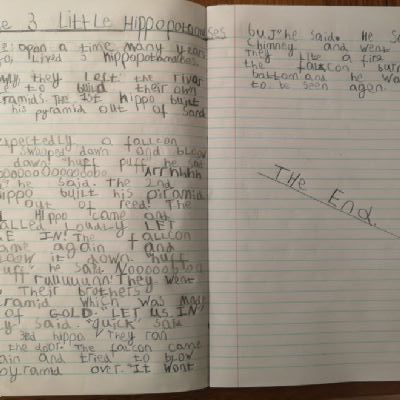 e 3 Little Hippopotamuses
e! open a time many years
go, lived 3 hippopotamuses
they left the river
to build their own
ramids. The 1st hippo built
his pyramid out of sand
expectedly a falcon
swooped down and blow
down "huff puff" he said
he said. The 2nd
hippo built his piramid
out of reed! The
Hippo came and
alled loudly LET
E IN! The falcon
ame again and
low it down. "huff
uff" he said
They went
Their brothers
ramid which was made
of GOLD. "LET US IN"
y said. "quick" said
3rd hippo. They ran
the door. The falcon came
ain and tried to blow
pyramid over. "It wont
he said. He
chimney and went
They a fire
the falcon burn
bottom and he wa
to be seen again.
THE End.